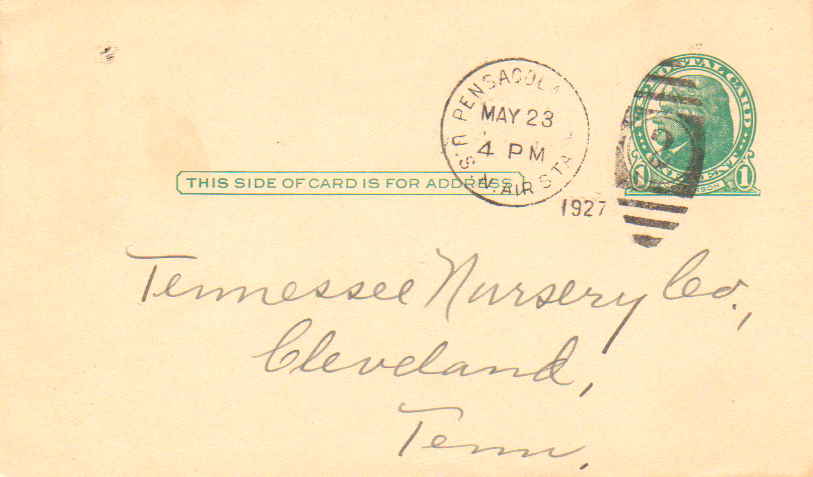 U.S. POSTAL CARD
PENSACOLA
MAY 23
4 PM
U.S.N. AIR STA
1927
1 1
THIS SIDE OF CARD IS FOR ADDRESS
Tennessee Nursery Co.,
Cleveland,
Tenn.